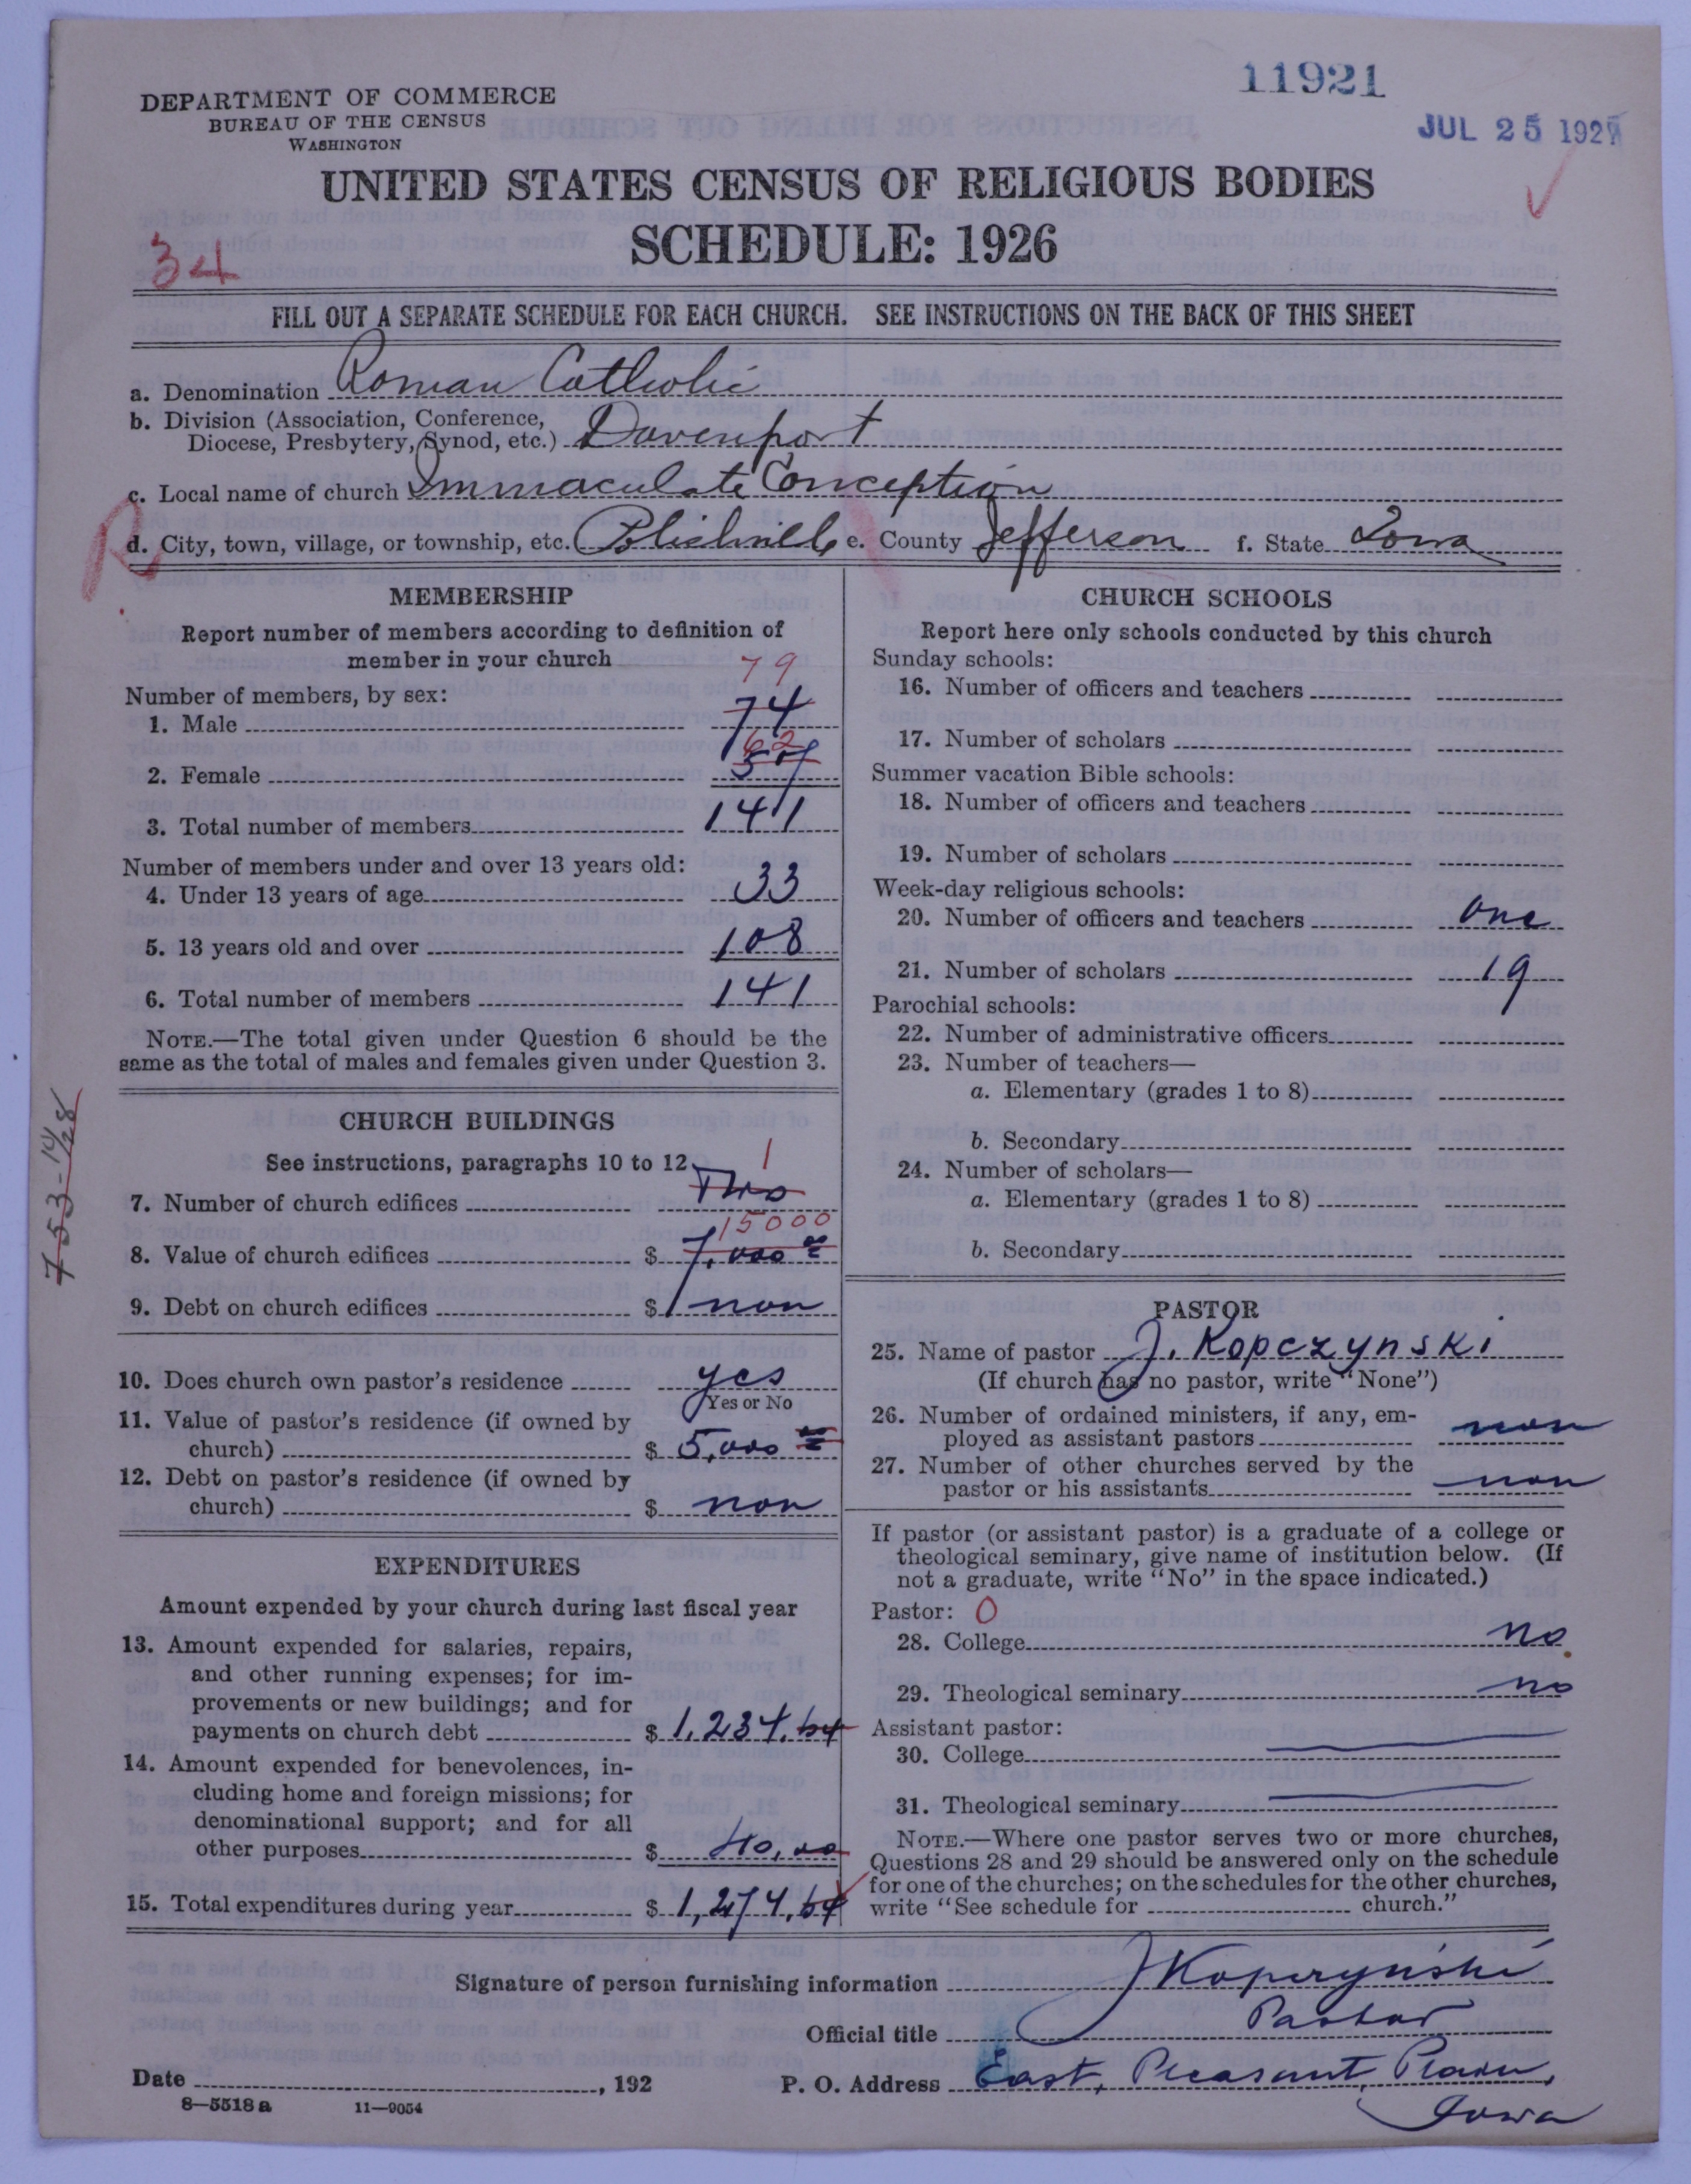 11921
JUL 25 1927
DEPARTMENT OF COMMERCE
BUREAU OF THE CENSUS
WASHINGTON
UNITED STATES CENSUS OF RELIGIOUS BODIES
SCHEDULE: 1926
34
FILL OUT A SEPARATE SCHEDULE FOR EACH CHURCH. SEE INSTRUCTIONS ON THE BACK OF THIS SHEET
a. Denomination Roman Catholic
b. Division (Association, Conference,
Diocese, Presbytery, Synod, etc.) Davenport
c. Local name of church Immaculate Conception
R
d. City, town, village, or township, etc. Polishville e. County Jefferson f. State Iowa
MEMBERSHIP
Report number of members according to definition of
member in your church
79
Number of members, by sex:
1. Male 74
62
2. Female 57
3. Total number of members 141
Number of members under and over 13 years old:
4. Under 13 years of age 33
5. 13 years old and over 108
6. Total number of members 141
NOTE.—The total given under Question 6 should be the
same as the total of males and females given under Question 3.
753-14/28
CHURCH BUILDINGS
See instructions, paragraphs 10 to 12
1
7. Number of church edifices Two
15000
8. Value of church edifices $ 7,000 00
9. Debt on church edifices $ non
10. Does church own pastor's residence yes
Yes or No
11. Value of pastor's residence (if owned by
church) $ 5,000 00
12. Debt on pastor's residence (if owned by
church) $ non
EXPENDITURES
Amount expended by your church during last fiscal year
13. Amount expended for salaries, repairs,
and other running expenses; for im-
provements or new buildings; and for
payments on church debt $ 1,234.64
14. Amount expended for benevolences, in-
cluding home and foreign missions; for
denominational support; and for all
other purposes $ 40,00
15. Total expenditures during year $ 1,274.64
CHURCH SCHOOLS
Report here only schools conducted by this church
Sunday schools:
16. Number of officers and teachers
17. Number of scholars
Summer vacation Bible schools:
18. Number of officers and teachers
19. Number of scholars
Week-day religious schools:
20. Number of officers and teachers one
21. Number of scholars 19
Parochial schools:
22. Number of administrative officers
23. Number of teachers—
a. Elementary (grades 1 to 8)
b. Secondary
24. Number of scholars—
a. Elementary (grades 1 to 8)
b. Secondary
PASTOR
25. Name of pastor J. Kopczynski
(If church has no pastor, write "None")
26. Number of ordained ministers, if any, em-
ployed as assistant pastors non
27. Number of other churches served by the
pastor or his assistants non
If pastor (or assistant pastor) is a graduate of a college or
theological seminary, give name of institution below. (If
not a graduate, write "No" in the space indicated.)
Pastor: 0
28. College no
29. Theological seminary no
Assistant pastor:
30. College
31. Theological seminary
NOTE.—Where one pastor serves two or more churches,
Questions 28 and 29 should be answered only on the schedule
for one of the churches; on the schedules for the other churches,
write "See schedule for church."
Signature of person furnishing information J Kopczynski
Official title Pastor
Date , 192 P. O. Address East, Pleasant Plain,
Iowa
8—5518a 11—9054